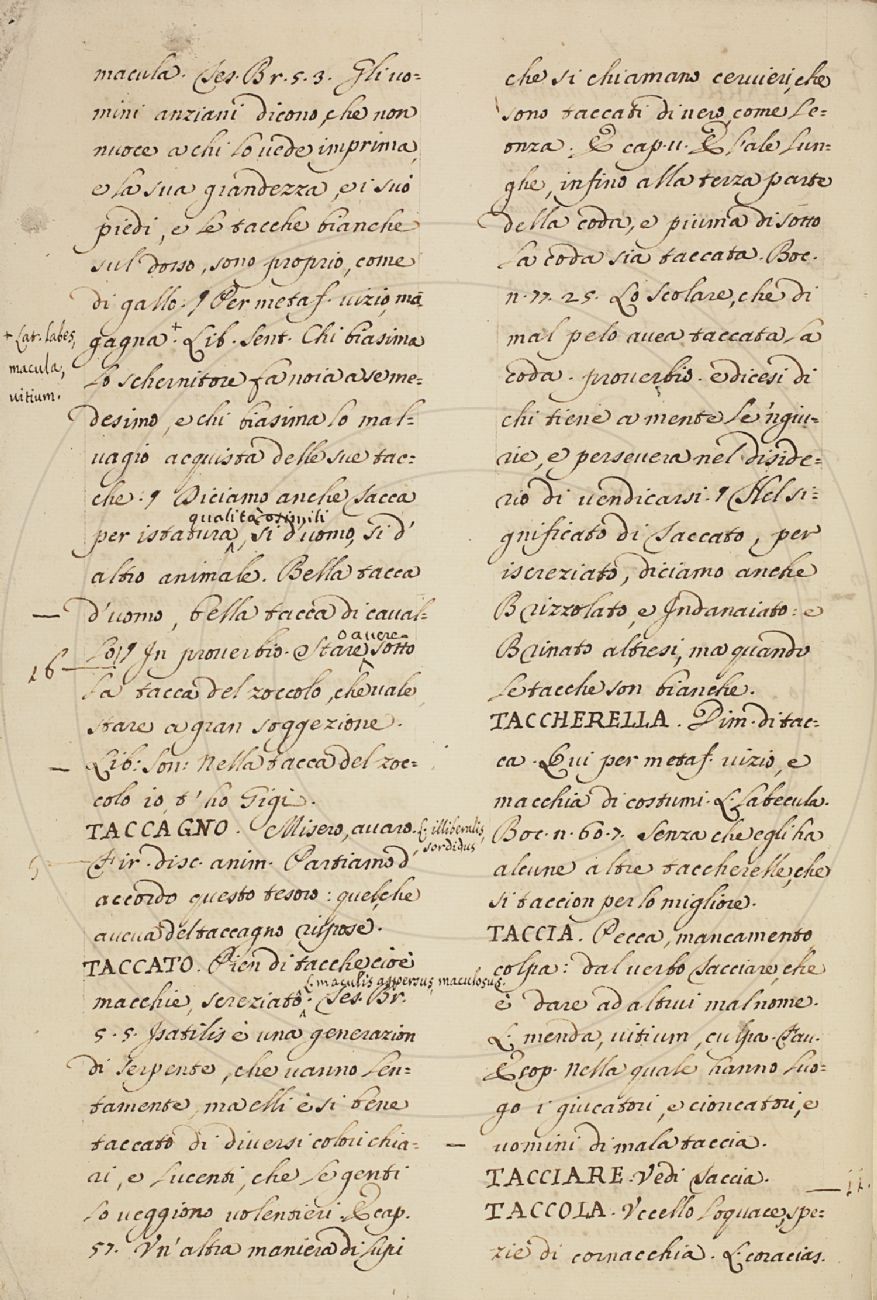 macula. Tes. Br. 5. 3. Gli uo=
mini anziani dicono, che non
nuoce a chi lo uede imprima,
e la sua grandezza, e i suo
piedi, e le tacche bianche
sul dosso, sono proprio, come
di gallo. ¶ Per metaf. uizio, ma
gagna +. Lib. Sent. Chi biasima
+ Lat. labes,
macula,
uitium.
lo schernitore fa noia a se me=
desimo, e chi biasima lo mal=
uagio acquista delle sue tac=
che. ¶ Diciamo anche Tacca
qualità, o simili
per istatura, sì d'uomo, sì d'
altro animale. Bella tacca
d'uomo, bella tacca di caual=
o auere
lo. ¶ In prouerbio. Stare sotto
16
la tacca del zoccolo, che uale
stare a gran soggezione.
Lib: Son: Nella tacca del zoc=
colo io t'ho Gigi.
TACCAGNO. Misero, auaro. L. illiberalis,
sordidus
Fir. disc. anim. Partiamo d'
accordo questo tesoro: quel, che
aueua del taccagno rispose.
TACCATO. Pien di tacche cioè
L. maculis aspersus, maculosus.
macchie, screziato. Tes. Br.
5. 5. Isatilis è una generazion
di serpente, che uanno len=
tamente, ma elli è sì bene
taccato di diuersi colori chia=
ri, e lucenti, che le genti
lo ueggiono uolentieri. E cap.
57. Vn'altra maniera di lupi
che si chiamano ceruieri, che
sono taccati di nero, come le=
onza. E cap. 11. E l'ale lun=
ghe, infino alla terza parte
della coda, e piuma di sotto
la coda sia taccata. Boc.
n. 77. 25. Lo scolare, che di
mal pelo auea taccata la
coda. prouerbio. e dicesi di
chi tiene a mente le 'ngiu=
rie, e perseuera nel diside=
rio di uendicarsi. ¶ Nel si=
gnificato di Taccato, per
iscreziato, diciamo anche
Brizzolato, e Indanaiato: e
Brinato altresì, ma quando
le tacche son bianche.
TACCHERELLA. Dim. di tac=
ca. Qui per metaf. uizio, e
macchia di costumi. L. Labecula.
Boc. n. 60. 7. Senza che egli ha
alcune altre taccherelle, che
si taccion per lo migliore.
TACCIA. Pecca, mancamento
colpa: dal uerbo Tacciare, che
è dare ad altrui mal nome.
L. menda, uitium, culpa. Fau.
Esop. Nella quale hanno luo=
go i giucatori, e cioncatori, e
uomini di mala taccia.
TACCIARE. Vedi Taccia.
TACCOLA. Vccello loquace, spe=
zie di cornacchia. L. coracias.